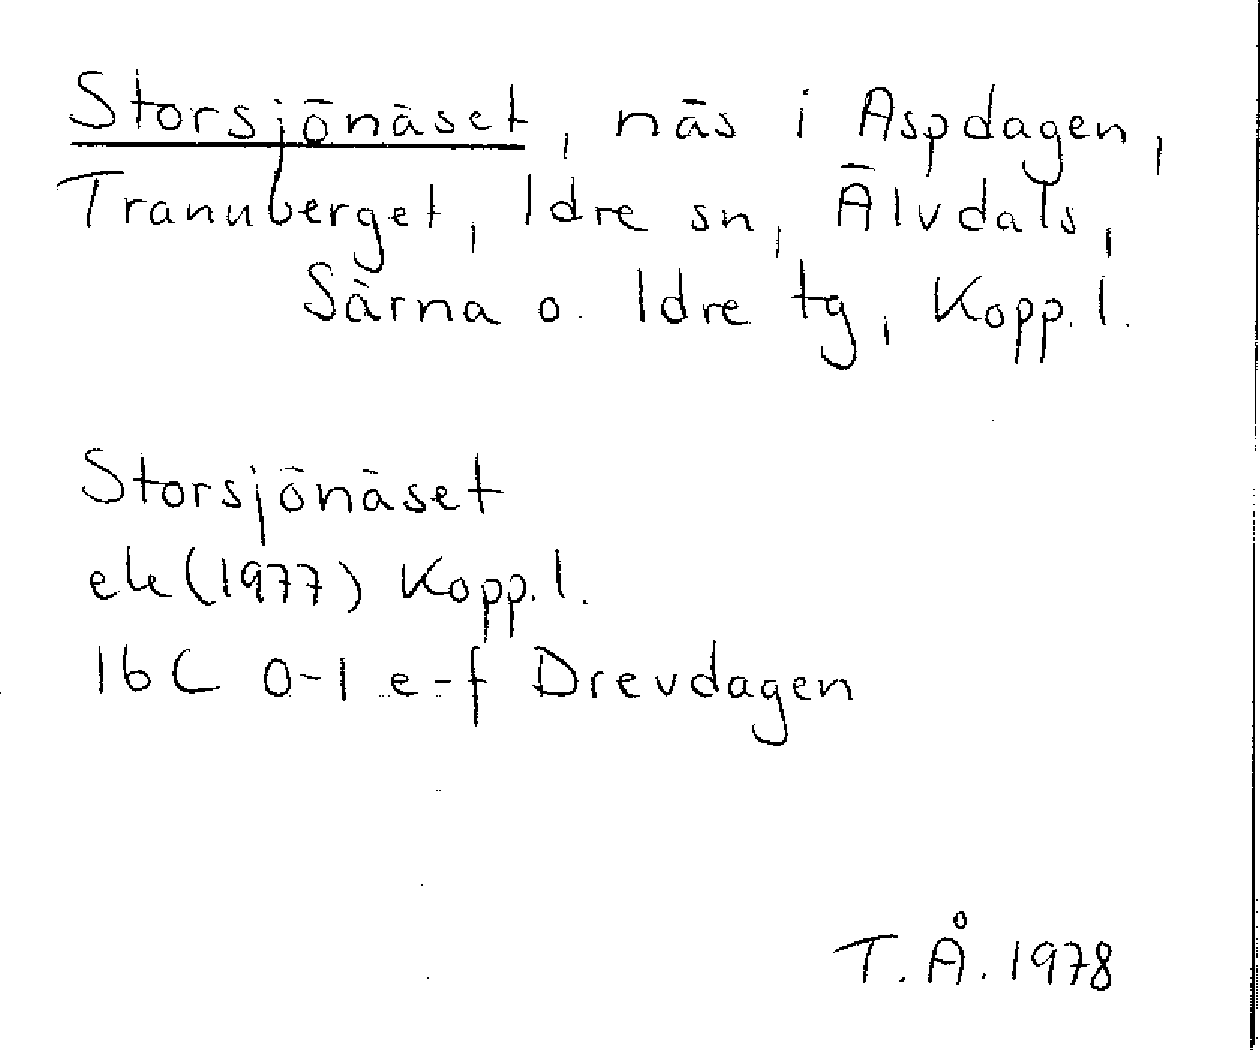 Storsjönäset, näs i Aspdagen,
Tranuberget, Idre sn, Älvdals,
Särna o. Idre tg, Kopp. l.
Storsjönäset
ek (1977) Kopp. l.
16C 0-1 e-f Drevdagen
T.Å. 1978